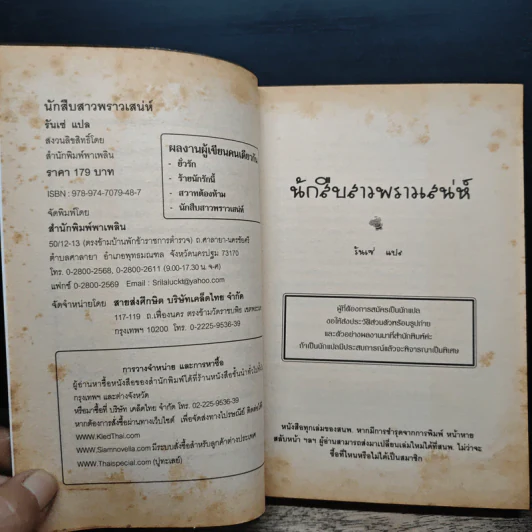 นักสืบสาวพราวเสน่ห์
รันเซ่ แปล
สงวนลิขสิทธิ์โดย
สำนักพิมพ์พาเพลิน
ราคา 179 บาท
ISBN : 978-974-7079-48-7
จัดพิมพ์โดย
สำนักพิมพ์พาเพลิน
50/12-13 (ตรงข้ามบ้านพักข้าราชการตำรวจ) ถ.ศาลายา-นครชัยศรี
ตำบลศาลายา อำเภอพุทธมณฑล จังหวัดนครปฐม 73170
โทร. 0-2800-2568, 0-2800-2611 (9.00-17.30 น. จ-ศ)
แฟกซ์ 0-2800-2569 Email : Srilaluckt@yahoo.com
จัดจำหน่ายโดย สายส่งศึกษิต บริษัทเคล็ดไทย จำกัด
117-119 ถ.เฟื่องนคร ตรงข้ามวัดราชบพิธ เขตพระนคร
กรุงเทพฯ 10200 โทร. 0-2225-9536-39
ผลงานผู้เขียนคนเดียวกัน
- ยั่วรัก
- ร้ายนักรักนี้
- สวาทต้องห้าม
- นักสืบสาวพราวเสน่ห์
การวางจำหน่าย และการหาซื้อ
ผู้อ่านหาซื้อหนังสือของสำนักพิมพ์ได้ที่ร้านหนังสือชั้นนำทั่วไปใน
กรุงเทพฯ และต่างจังหวัด
หรือมาซื้อที่ บริษัท เคล็ดไทย จำกัด โทร. 02-225-9536-39
หากต้องการสั่งซื้อผ่านทางเว็บไซต์ เพื่อจัดส่งทางไปรษณีย์ ติดต่อได้
- www.KledThai.com
- www.Siamnovella.com มีระบบสั่งซื้อสำหรับลูกค้าต่างประเทศ
- www.Thaispecial.com (ปูทะเลย์)
นักสืบสาวพราวเสน่ห์
รันเซ่ แปล
ผู้ที่ต้องการสมัครเป็นนักแปล
ขอให้ส่งประวัติส่วนตัวพร้อมรูปถ่าย
และตัวอย่างผลงานมาที่สำนักพิมพ์ค่ะ
ถ้าเป็นนักแปลมีประสบการณ์แล้วจะพิจารณาเป็นพิเศษ
หนังสือทุกเล่มของสนพ. หากมีการชำรุดจากการพิมพ์ หน้าหาย
สลับหน้า ฯลฯ ผู้อ่านสามารถส่งมาเปลี่ยนเล่มใหม่ได้ที่สนพ ไม่ว่าจะ
ซื้อที่ไหนหรือไม่ได้เป็นสมาชิก